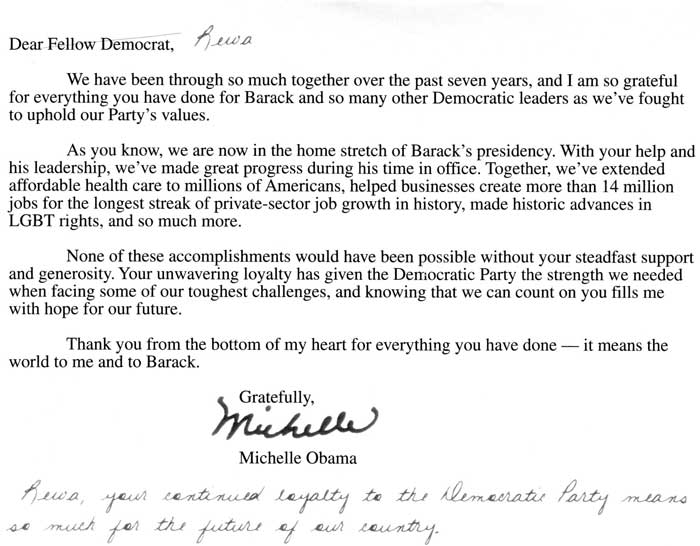 Dear Fellow Democrat, Rewa
We have been through so much together over the past seven years, and I am so grateful
for everything you have done for Barack and so many other Democratic leaders as we've fought
to uphold our Party's values.
As you know, we are now in the home stretch of Barack's presidency. With your help and
his leadership, we've made great progress during his time in office. Together, we've extended
affordable health care to millions of Americans, helped businesses create more than 14 million
jobs for the longest streak of private-sector job growth in history, made historic advances in
LGBT rights, and so much more.
None of these accomplishments would have been possible without your steadfast support
and generosity. Your unwavering loyalty has given the Democratic Party the strength we needed
when facing some of our toughest challenges, and knowing that we can count on you fills me
with hope for our future.
Thank you from the bottom of my heart for everything you have done — it means the
world to me and to Barack.
Gratefully,
Michelle
Michelle Obama
Rewa, your continued loyalty to the Democratic Party means
so much for the future of our country.